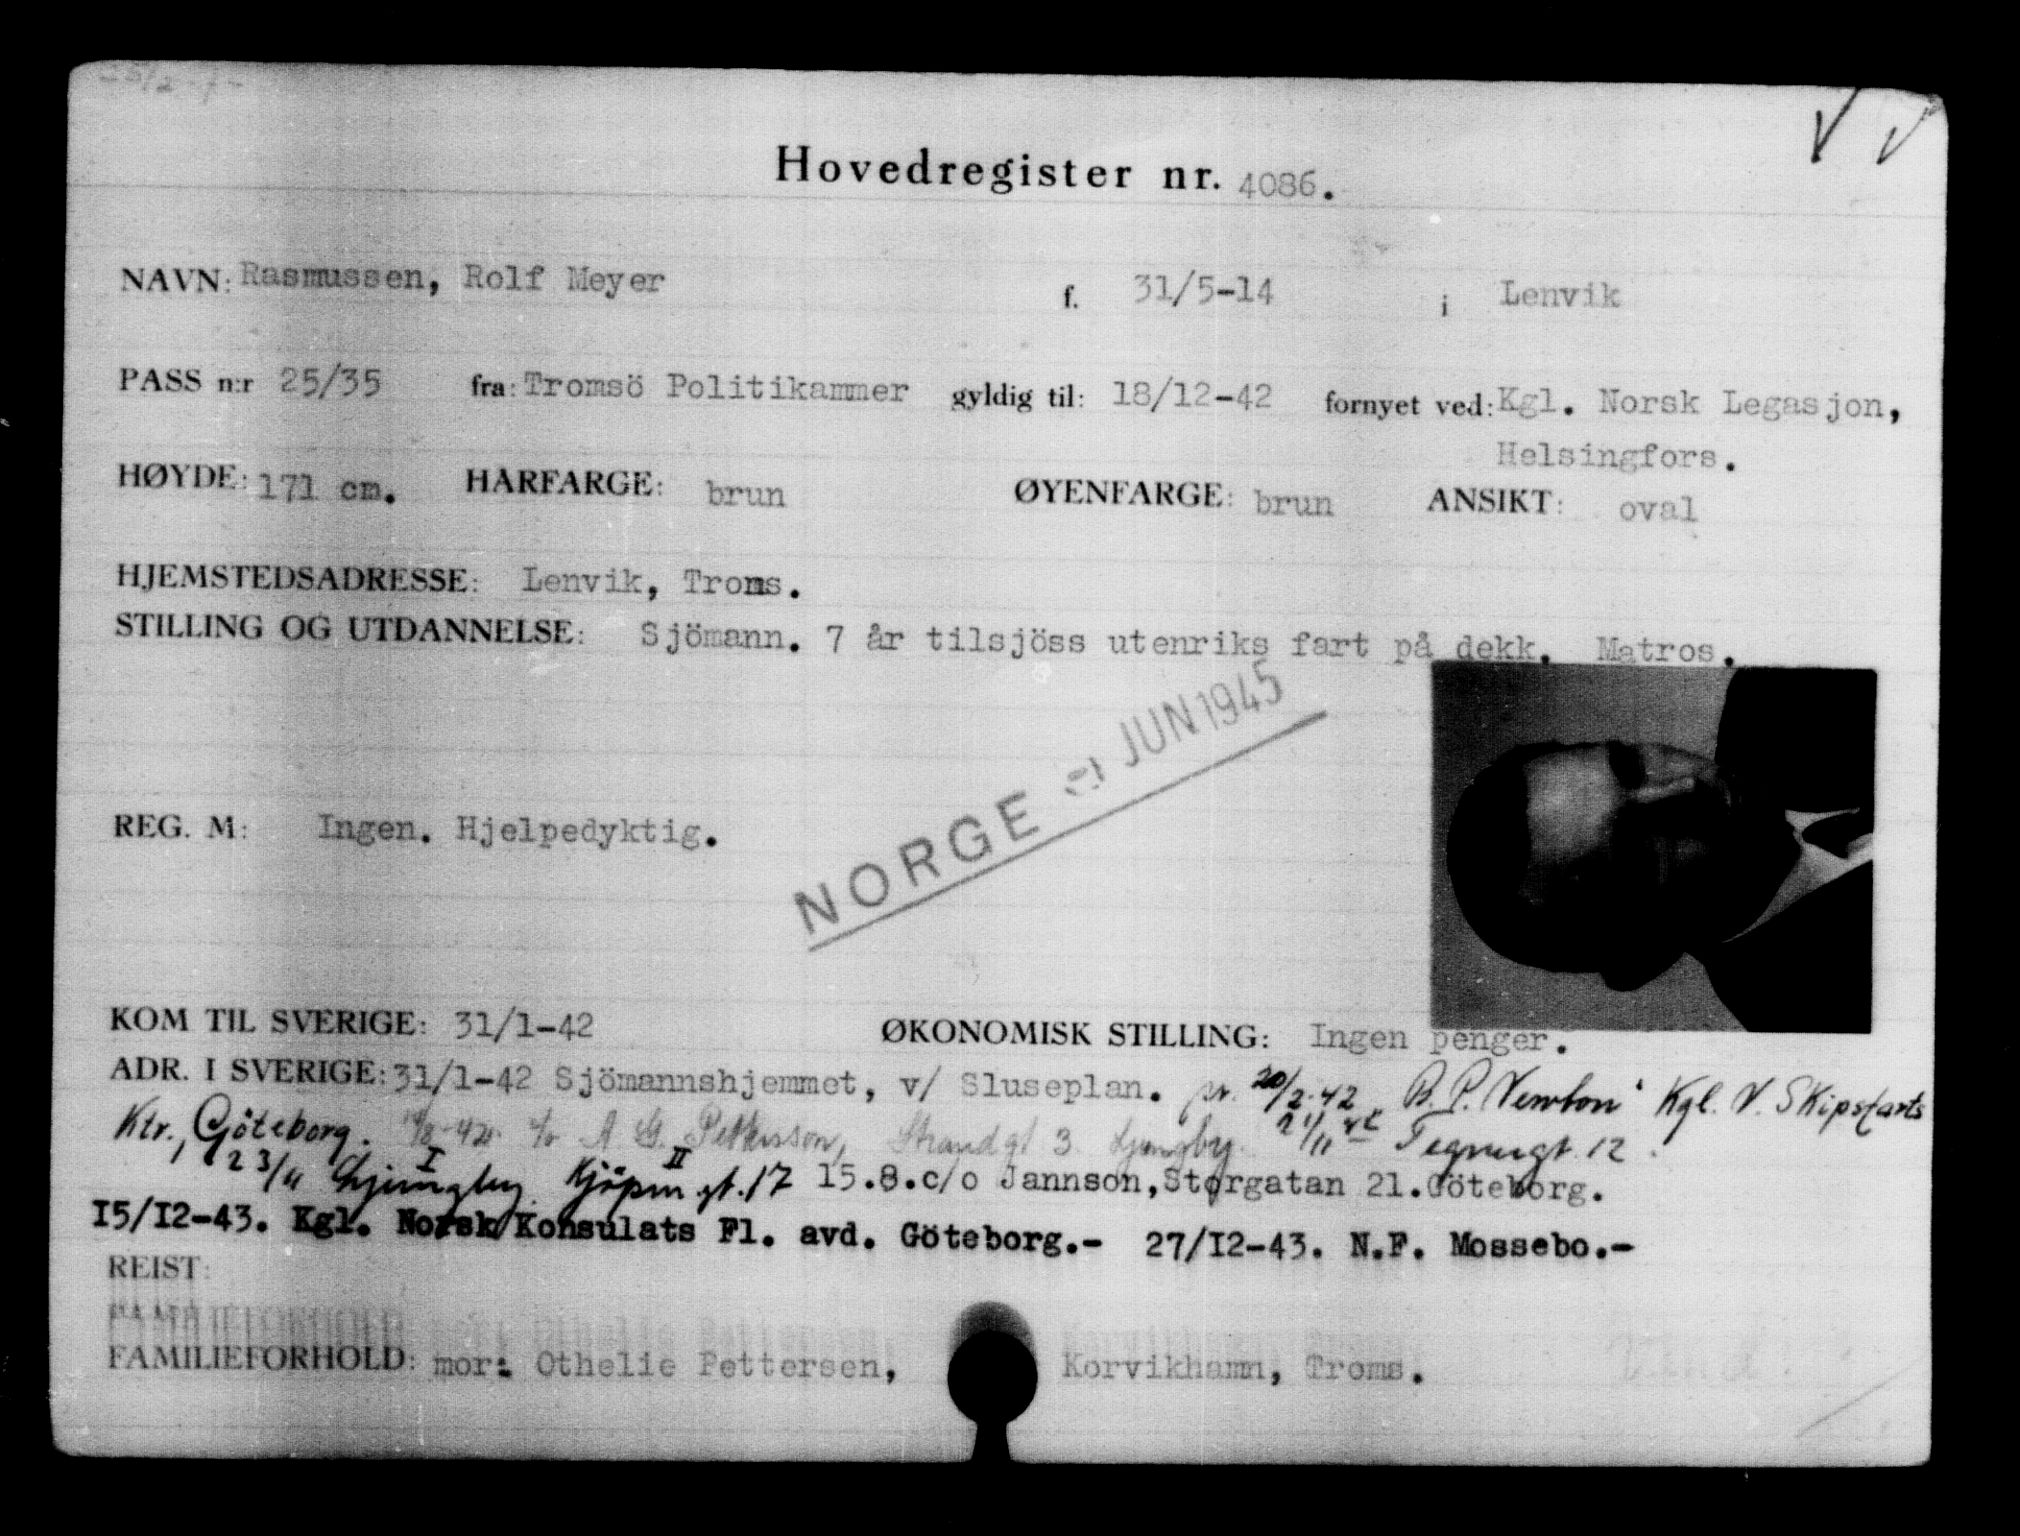 Hovedregister nr. 4086.
NAVN: Rasmussen, Rolf Meyer f. 31/5-14 i Lenvik
PASS n:r 25/35 fra: Tromsö Politikammer gyldig til: 18/12-42 fornyet ved: Kgl. Norsk Legasjon,
Helsingfors.
HØYDE: 171 cm. HÅRFARGE: brun ØYENFARGE: brun ANSIKT: oval
HJEMSTEDSADRESSE: Lenvik, Troms.
STILLING OG UTDANNELSE: Sjömann. 7 år tilsjöss utenriks fart på dekk. Matros.
NORGE JUN 1945
REG. M: Ingen. Hjelpedyktig.
KOM TIL SVERIGE: 31/1-42 ØKONOMISK STILLING: Ingen penger.
ADR. I SVERIGE: 31/1-42 Sjömannshjemmet, v/ Sluseplan. pr. 20/2-42 B.P. Newton Kgl. N. Skipsfarts
Ktr., Göteborg. c/o A. G. Pettersson, Strandgt 3 Ljungby. 21/11 42 Tegnergt 12.
23/11 Ljungby. Kjöpm.gt. 17 15.8.c/o Jannson, Storgatan 21. Göteborg.
15/12-43. Kgl. Norsk Konsulats Fl. avd. Göteborg.- 27/12-43. N.F. Mossebo.-
REIST:
FAMILIEFORHOLD: mor: Othelie Pettersen, Korvikhamn, Troms.